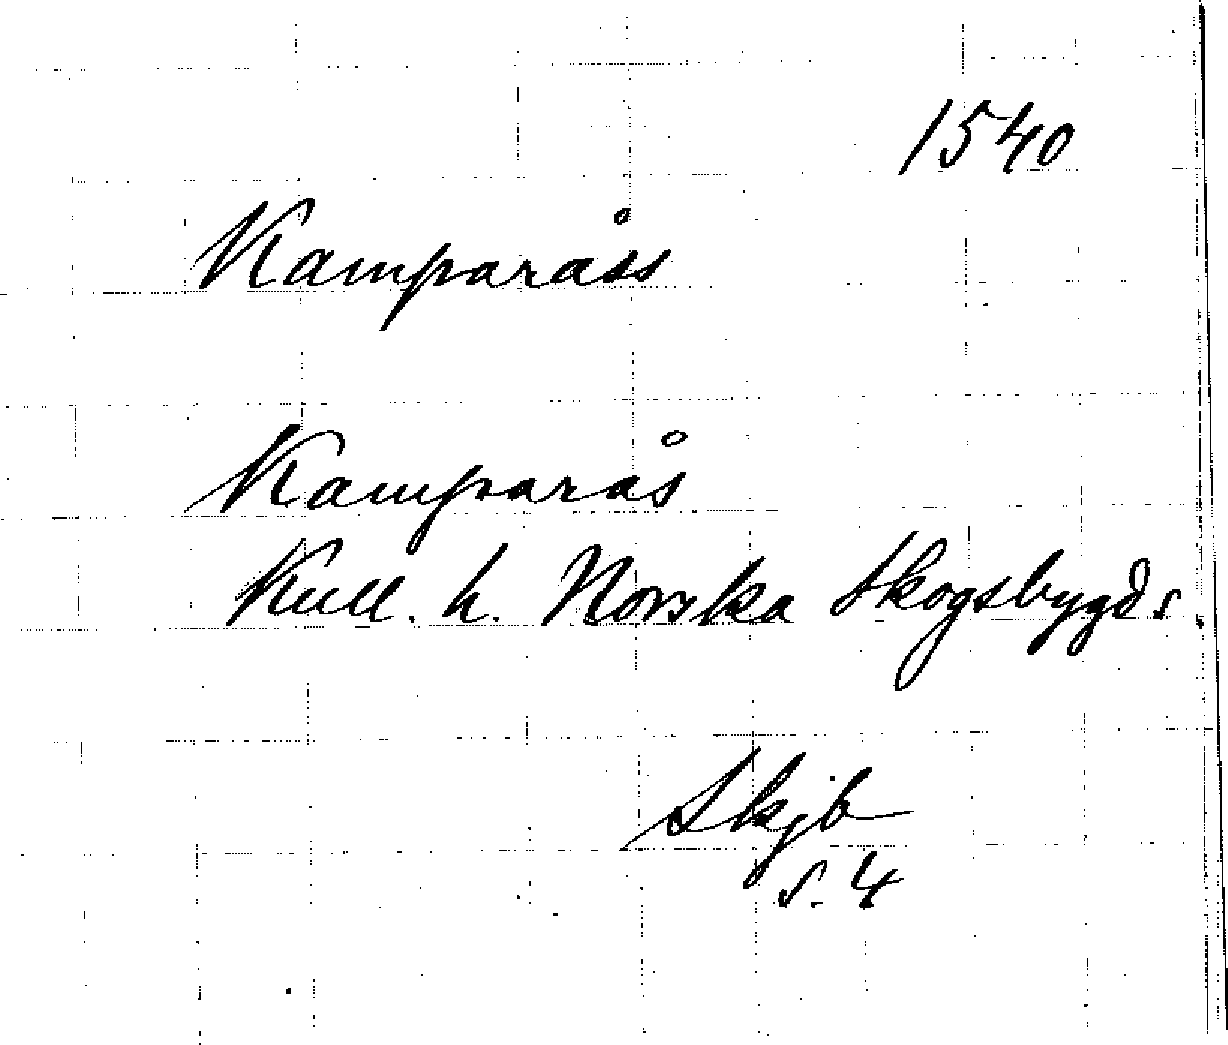 1540
Kamparåss
Kamparås
Kull. h. Norska Skogsbygds
Skjb
s. 4